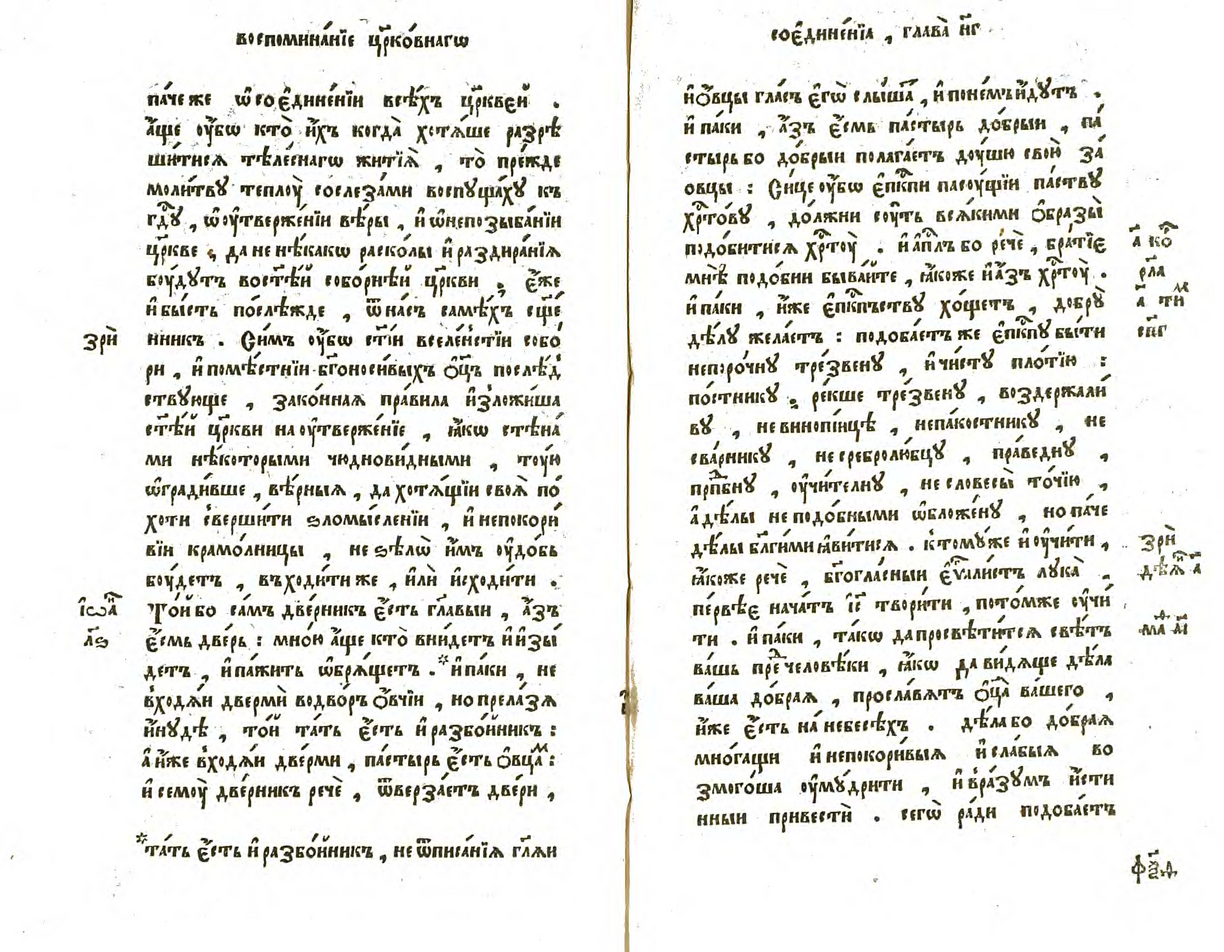 воспомина́нїе цр҃ко́внагѡ
па́че же ѡ҆ соє҆дине́нїи всѣ́хъ цр҃кве́й .
а҆́ще оу҆́бѡ кто̀ и҆́хъ когда̀ хотѧ́ше разрѣ
ши́тисѧ тѣле́снагѡ житїѧ̀ , то̀ пре́жде
моли́твꙋ те́плоу сослеза́ми воспꙋща́хꙋ къ
гдⷭ҇ꙋ , ѡ҆ оу҆твержє́нїи вѣ́ры , и҆ ѡ҆ непозыба́нїи
цр҃кве , да не нѣ́какѡ раско́лы и҆ раздира́нїѧ
боу́дꙋтъ востѣ́й собо́рнѣй цр҃кви . є҆́же
и҆ бы́сть послѣ́жде , ѿ на́съ самѣ́хъ сщ҃е
зрѝ
нникъ . Си́мъ оу҆́бѡ ст҃і́и вселе́нстїи собо́
ри , и҆ помѣ́стнїи бг҃оноси́выхъ ѻ҆ц҃ъ послѣ́д
ствꙋюще , зако́ннаѧ пра́вила и҆зложи́ша
ст҃ѣ́й цр҃кви на оу҆твержє́нїе , ꙗ҆́кѡ стѣна́
ми нѣ́которыми чюднови́дными , тоу́ю
ѡ҆гради́вше , вѣ́рныѧ , да хотѧ́щїи своѧ̀ по́
хоти сверши́ти ѕломы́сленїи , и҆ непокори́
вїи крамо́лницы , не ѕѣлѡ̀ и҆́мъ оу҆до́бь
боу́детъ , въходи́ти же , и҆лѝ и҆сходи́ти .
і҆ѡⷩ҇а
То́й бо са́мъ две́рникъ є҆́сть гла́выи , а҆́зъ
л҃ѕ
є҆́смь две́рь : мно́ю а҆́ще кто̀ вни́детъ и҆ и҆зы́
детъ , и҆ па́жить ѡ҆брѧ́щетъ . * и҆ па́ки , не
входѧ́и двермѝ водво́ръ ѻ҆́вчїи , но прела́зѧ
и҆нꙋ́дѣ , то́й та́ть є҆́сть и҆ разбо́йникъ :
а҆ и҆́же входѧ́и две́рми , па́стырь є҆́сть ѻ҆вца́мъ :
и҆ семоу̀ две́рникъ речѐ , ѿверза́етъ две́ри ,
* та́ть є҆́сть и҆ разбо́йникъ , не ѿ писа́нїѧ гл҃ѧи
соє҆дине́нїѧ , глава̀ н҃г
и҆ ѻ҆́вцы гла́съ є҆гѡ̀ слы́шаⷮ , и҆ по не́мъ и҆́дꙋтъ .
и҆ па́ки , а҆́зъ є҆́смь па́стырь до́брыи , па́
стырь бо до́брыи полага́етъ доу́шю свою̀ за́
овцы : Си́це оу҆́бѡ є҆пⷭ҇кпи пасоу́щїи па́ствꙋ
хрⷭ҇то́вꙋ , до́лжни соу́ть всѧ́кими ѻ҆́бразы̀
подо́битисѧ хрⷭ҇тоу̀ . и҆ а҆пⷭ҇лъ бо речѐ , бра́тїе
а҃ коⷬ҇
мнѣ̀ подо́бни быва́йте , ꙗ҆́коже и҆ а҆́зъ хрⷭ҇тоу̀ .
рл҃а
и҆ па́ки , и҆́же є҆пⷭ҇кпъствꙋ хо́щетъ , добрꙋ̀
а҃ тиⷨ
дѣ́лꙋ жела́етъ : подоба́етъ же є҆пⷭ҇кпꙋ бы́ти
сп҃г
непоро́чнꙋ тре́звенꙋ , и҆ чи́стꙋ пло́тїю :
по́стникꙋ , ре́кше тре́звенꙋ , воздержали́
вꙋ , не винопі́ицѣ , непа́костникꙋ , не
сва́рникꙋ , не сребролю́бцꙋ , пра́веднꙋ ,
прпⷣбнꙋ , оу҆чи́телнꙋ , не словесы̀ то́чїю ,
а҆ дѣ́лы неподо́бными ѡ҆бложе́нꙋ , но па́че
дѣ́лы бл҃ги́ми ꙗ҆ви́тисѧ . к томꙋ́ же и҆ оу҆чи́ти ,
зрѝ
ꙗ҆́коже речѐ , бг҃огла́сныи є҆ѵⷢ҇али́стъ лꙋка̀ ,
дѣѧⷩ҇ а҃
пе́рвѣе нача́тъ і҆с҃ твори́ти , пото́мже оу҆чи́
ти . и҆ па́ки , та́кѡ да просвѣти́тсѧ свѣ́тъ
маⷴ҇ а҃і
ва́шь преⷣ человѣ́ки , ꙗ҆́кѡ да ви́дѧще дѣ́ла
ва́ша до́браѧ , просла́вѧтъ ѻ҆ц҃а̀ ва́шего ,
и҆́же є҆́сть на небесѣ́хъ . дѣ́ла бо до́браѧ
мно́гащи и҆ непокори́выѧ и҆ сла́быѧ во
змого́ша оу҆мꙋдри́ти , и҆ вра́зꙋмъ и҆́сти
нныи привестѝ . сегѡ̀ ра́ди подоба́етъ